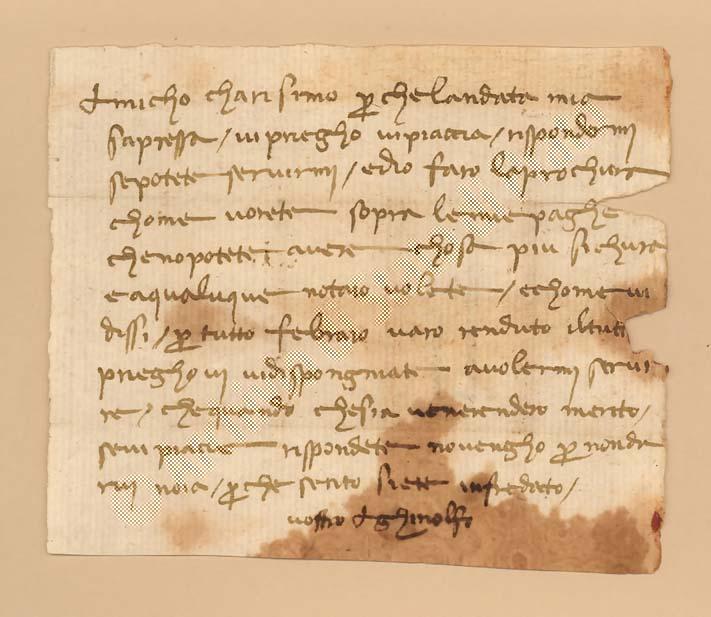 Amicho charisimo p che landata mia
sapressa / vi priegho vi piaccia / rispondermi
sepotete servirmi / edio faro laprochura
chome vorete sopra lemie paghe
chenopotete avere chosa piu sichura
eaqualuque notaio volete / echome vi
dissi / p tutto febraio varo renduto iltut
prieghovi vi dispongniate avolermi servi
re / chequando chesia venerendero merito /
sevi piacie rispondete novengho p nonda
rvi noia / p che sento siete infredato /
vostro Aghinolfo